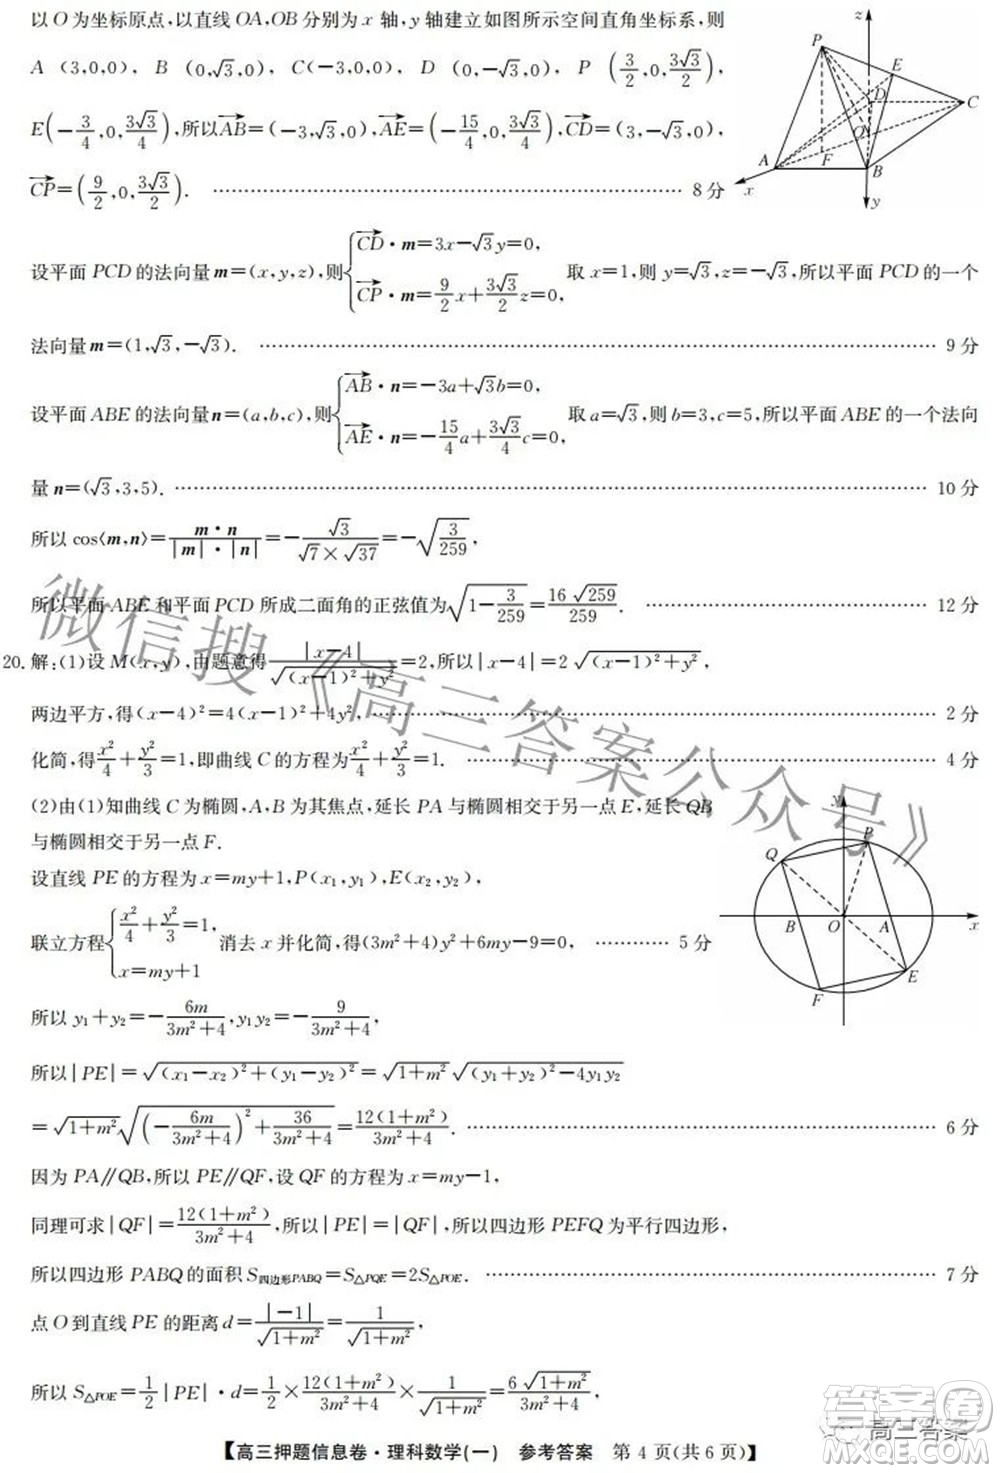 以 O 为坐标原点,以直线 OA,OB 分别为 x 轴,y 轴建立如图所示空间直角坐标系,则
A (3,0,0), B (0,√3,0), C(−3,0,0), D (0,−√3,0), P (3/2,0,3√3/2),
E(−3/4,0,3√3/4),所以AB→=(−3,√3,0),AE→=(−15/4,0,3√3/4),CD→=(3,−√3,0),
CP→=(9/2,0,3√3/2). …………………………… 8 分
z
P
E
D
C
O
A
F
B
x
y
设平面 PCD 的法向量 m=(x,y,z),则{CD→·m=3x−√3y=0, CP→·m=9/2x+3√3/2z=0, 取 x=1,则 y=√3,z=−√3,所以平面 PCD 的一个
法向量 m=(1,√3,−√3). …………………………… 9 分
设平面 ABE 的法向量 n=(a,b,c),则{AB→·n=−3a+√3b=0, AE→·n=−15/4a+3√3/4c=0, 取 a=√3,则 b=3,c=5,所以平面 ABE 的一个法向
量 n=(√3,3,5). …………………………… 10 分
所以 cos⟨m,n⟩=m·n/|m|·|n|=−√3/√7×√37=−√(3/259),
所以平面 ABE 和平面 PCD 所成二面角的正弦值为√(1−3/259)=16√259/259. …………………………… 12 分
20. 解:(1)设 M(x,y),由题意得|x−4|/√((x−1)²+y²)=2,所以|x−4|=2√((x−1)²+y²),
两边平方,得(x−4)²=4(x−1)²+4y², …………………………… 2 分
化简,得x²/4+y²/3=1,即曲线 C 的方程为x²/4+y²/3=1. …………………………… 4 分
(2)由(1)知曲线 C 为椭圆,A,B 为其焦点,延长 PA 与椭圆相交于另一点 E,延长 QB
与椭圆相交于另一点 F.
设直线 PE 的方程为 x=my+1,P(x₁,y₁),E(x₂,y₂),
联立方程{x²/4+y²/3=1, x=my+1 消去 x 并化简,得(3m²+4)y²+6my−9=0, ………… 5 分
y
P
Q
B
O
A
x
E
F
所以 y₁+y₂=−6m/3m²+4,y₁y₂=−9/3m²+4,
所以|PE|=√((x₁−x₂)²+(y₁−y₂)²)=√(1+m²)√((y₁+y₂)²−4y₁y₂)
=√(1+m²)√((−6m/3m²+4)²+36/3m²+4)=12(1+m²)/3m²+4. …………………………… 6 分
因为 PA∥QB,所以 PE∥QF,设 QF 的方程为 x=my−1,
同理可求|QF|=12(1+m²)/3m²+4,所以|PE|=|QF|,所以四边形 PEFQ 为平行四边形,
所以四边形 PABQ 的面积 S四边形PABQ=S△PQE=2S△POE. …………………………… 7 分
点 O 到直线 PE 的距离 d=|−1|/√(1+m²)=1/√(1+m²),
所以 S△POE=1/2|PE|·d=1/2×12(1+m²)/3m²+4×1/√(1+m²)=6√(1+m²)/3m²+4,
【高三押题信息卷·理科数学(一) 参考答案 第 4 页(共 6 页)】
微信搜《高三答案公众号》
高三答案
答案圈
MXQE.COM